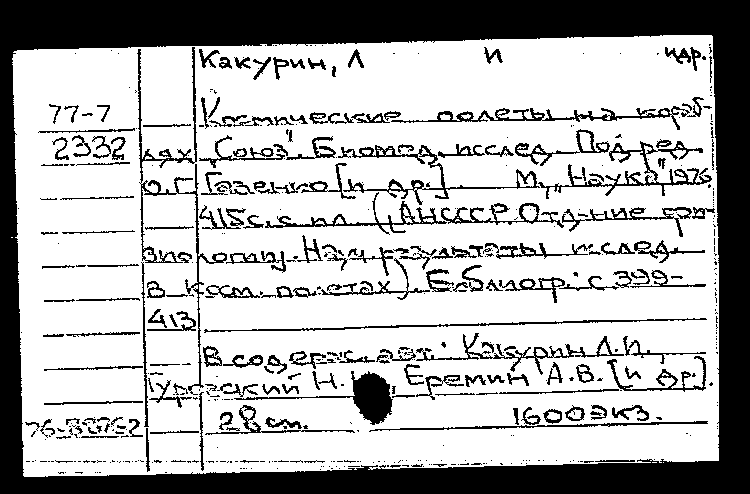 Какурин, Л И идр.
77-7 Космические полеты на кораб-
2332 лях „Союз". Биомед. исслед. Под ред.
О.Г. Газенко [и др.]. М., „Наука", 1976.
415с. с ил. (АН СССР. Отд-ние фи-
зиологии. Науч. результаты исслед.
в косм. полетах). Библиогр.: с 399-
413
В содерж. авт: Какурин Л.И.,
Н. Еремин А.В. [и др.].
28см. 1600экз.